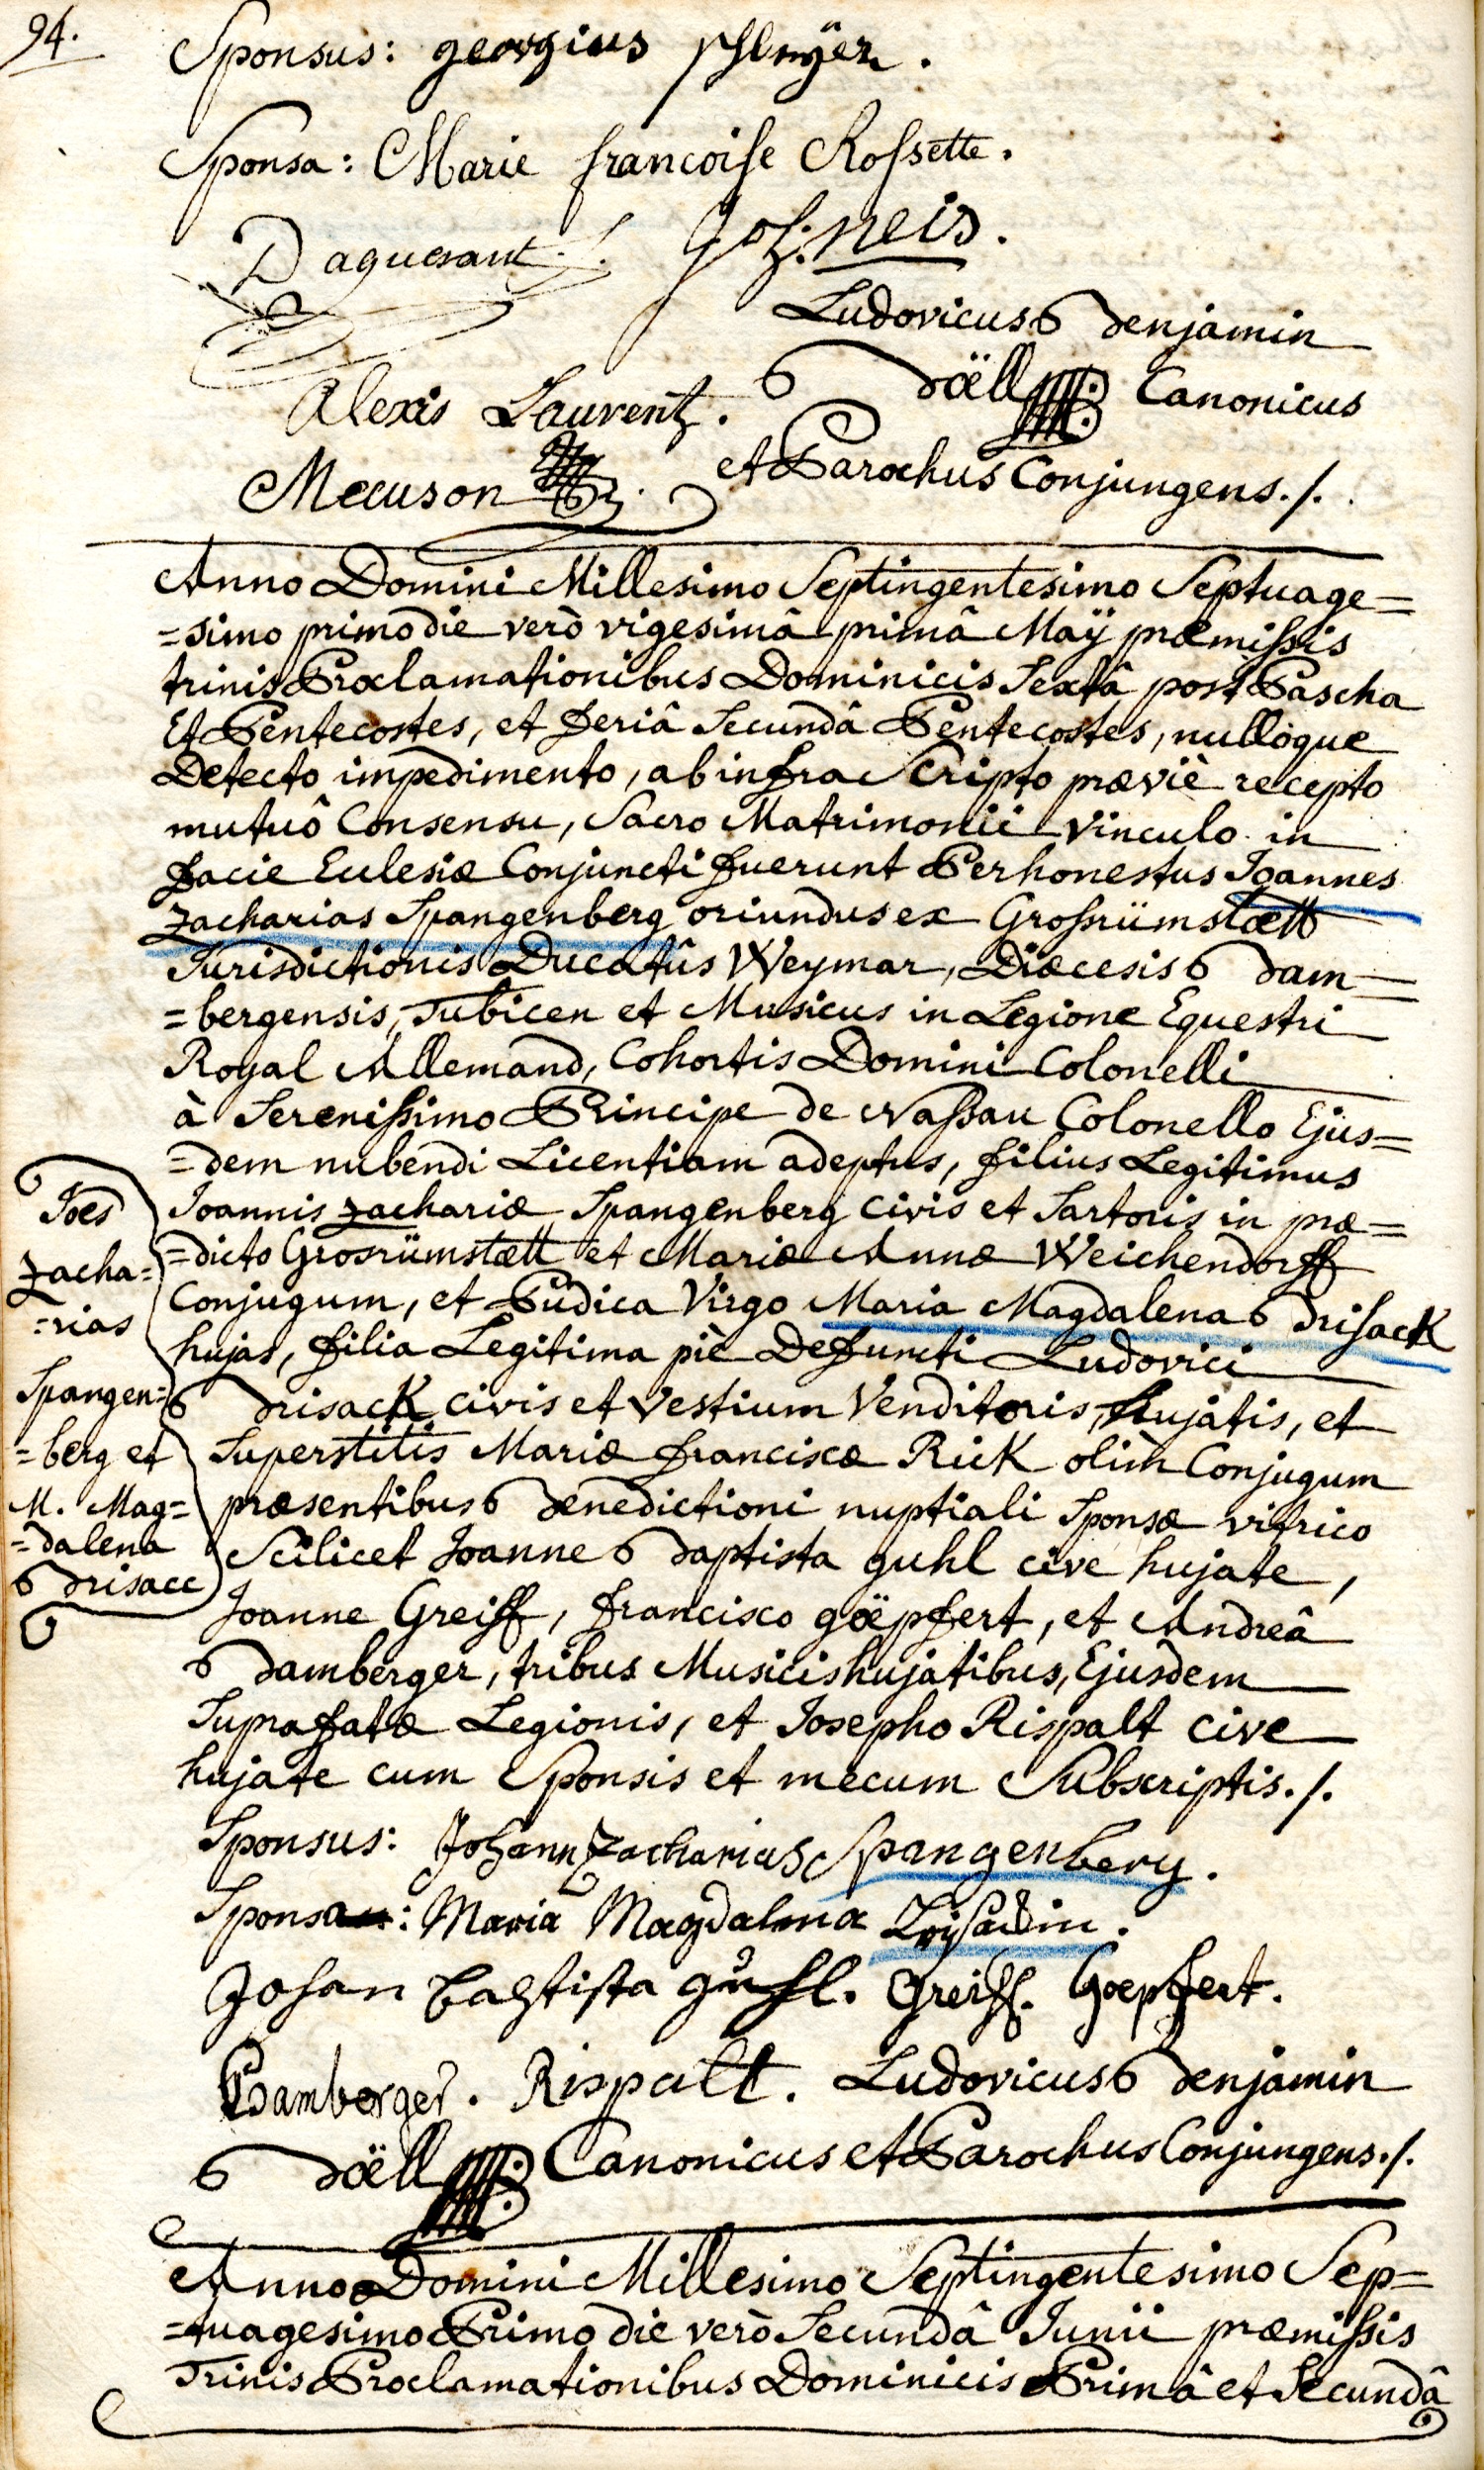 94.
Sponsus: georgius
Sponsa: Marie francoise Rossette.
Daguesant Joh: neis.
Ludovicus Benjamin
Alexis Laurent. Böell Canonicus
Mecuson et Parochus Conjungens./.
Anno Domini Millesimo Septingentesimo Septuage=
=simo primo die verò vigesimâ primâ Maÿ præmissis
trinis Proclamationibus Dominicis Sextâ post Pascha
Et Pentecostes, et feriâ Secundâ Pentecostes, nullóque
Detecto impedimento, ab infra Scripto præviè recepto
mutuô Consensu, Sacro Matrimonii vinculo in
facie Eclesiæ Conjuncti fuerunt Perhonestus Joannes
Zacharias Spangenberg oriundus ex Grossrümstætt
Jurisdictionis Ducatûs Weymar, Diæcesis Bam=
=bergensis, Tubicen et Musicus in Legione Equestri
Royal Allemand, Cohortis Domini Colonelli
à Serenissimo Principe de Nassau Colonello Ejus=
=dem nubendi Licentiam adeptus, filius Legitimus
Joannis Zachariæ Spangenberg civis et Sartoris in præ=
=dicto Grosrümstætt et Mariæ Annæ Weichendorff
Conjugum, et Pudica Virgo Maria Magdalena Brisack
hujas, filia Legitima piè Defuncti Ludovici
Brisack civis et Vestium Venditoris, hujátis, et
Superstitis Mariæ franciscæ Rick olim Conjugum
præsentibus Benedictioni nuptiali Sponsæ vitrico
Scilicet Joanne Baptista guhl cive hujate,
Joanne Greiff, francisco göepfert, et Andreâ
Bamberger, tribus Musicis hujatibus, Ejusdem
Suprafatæ Legionis, et Josepho Rispalt cive
hujate cum Sponsis et mecum Subscriptis./.
Joes
Zacha=
=rias
Spangen=
=berg et
M. Mag=
=dalena
Brisacc
Sponsus: Johann Zacharias Spangenberg.
Sponsa: Maria Magdalena Brisackin.
Johan Baptista guhl. Greiff. Goepfert.
Bamberger. Rispalt. Ludovicus Benjamin
Böell Canonicus et Parochus Conjungens./.
Anno Domini Millesimo Septingentesimo Sep=
=tuagesimo Primo die verò Secundâ Junii præmissis
Trinis Proclamationibus Dominicis Primâ et Secundâ